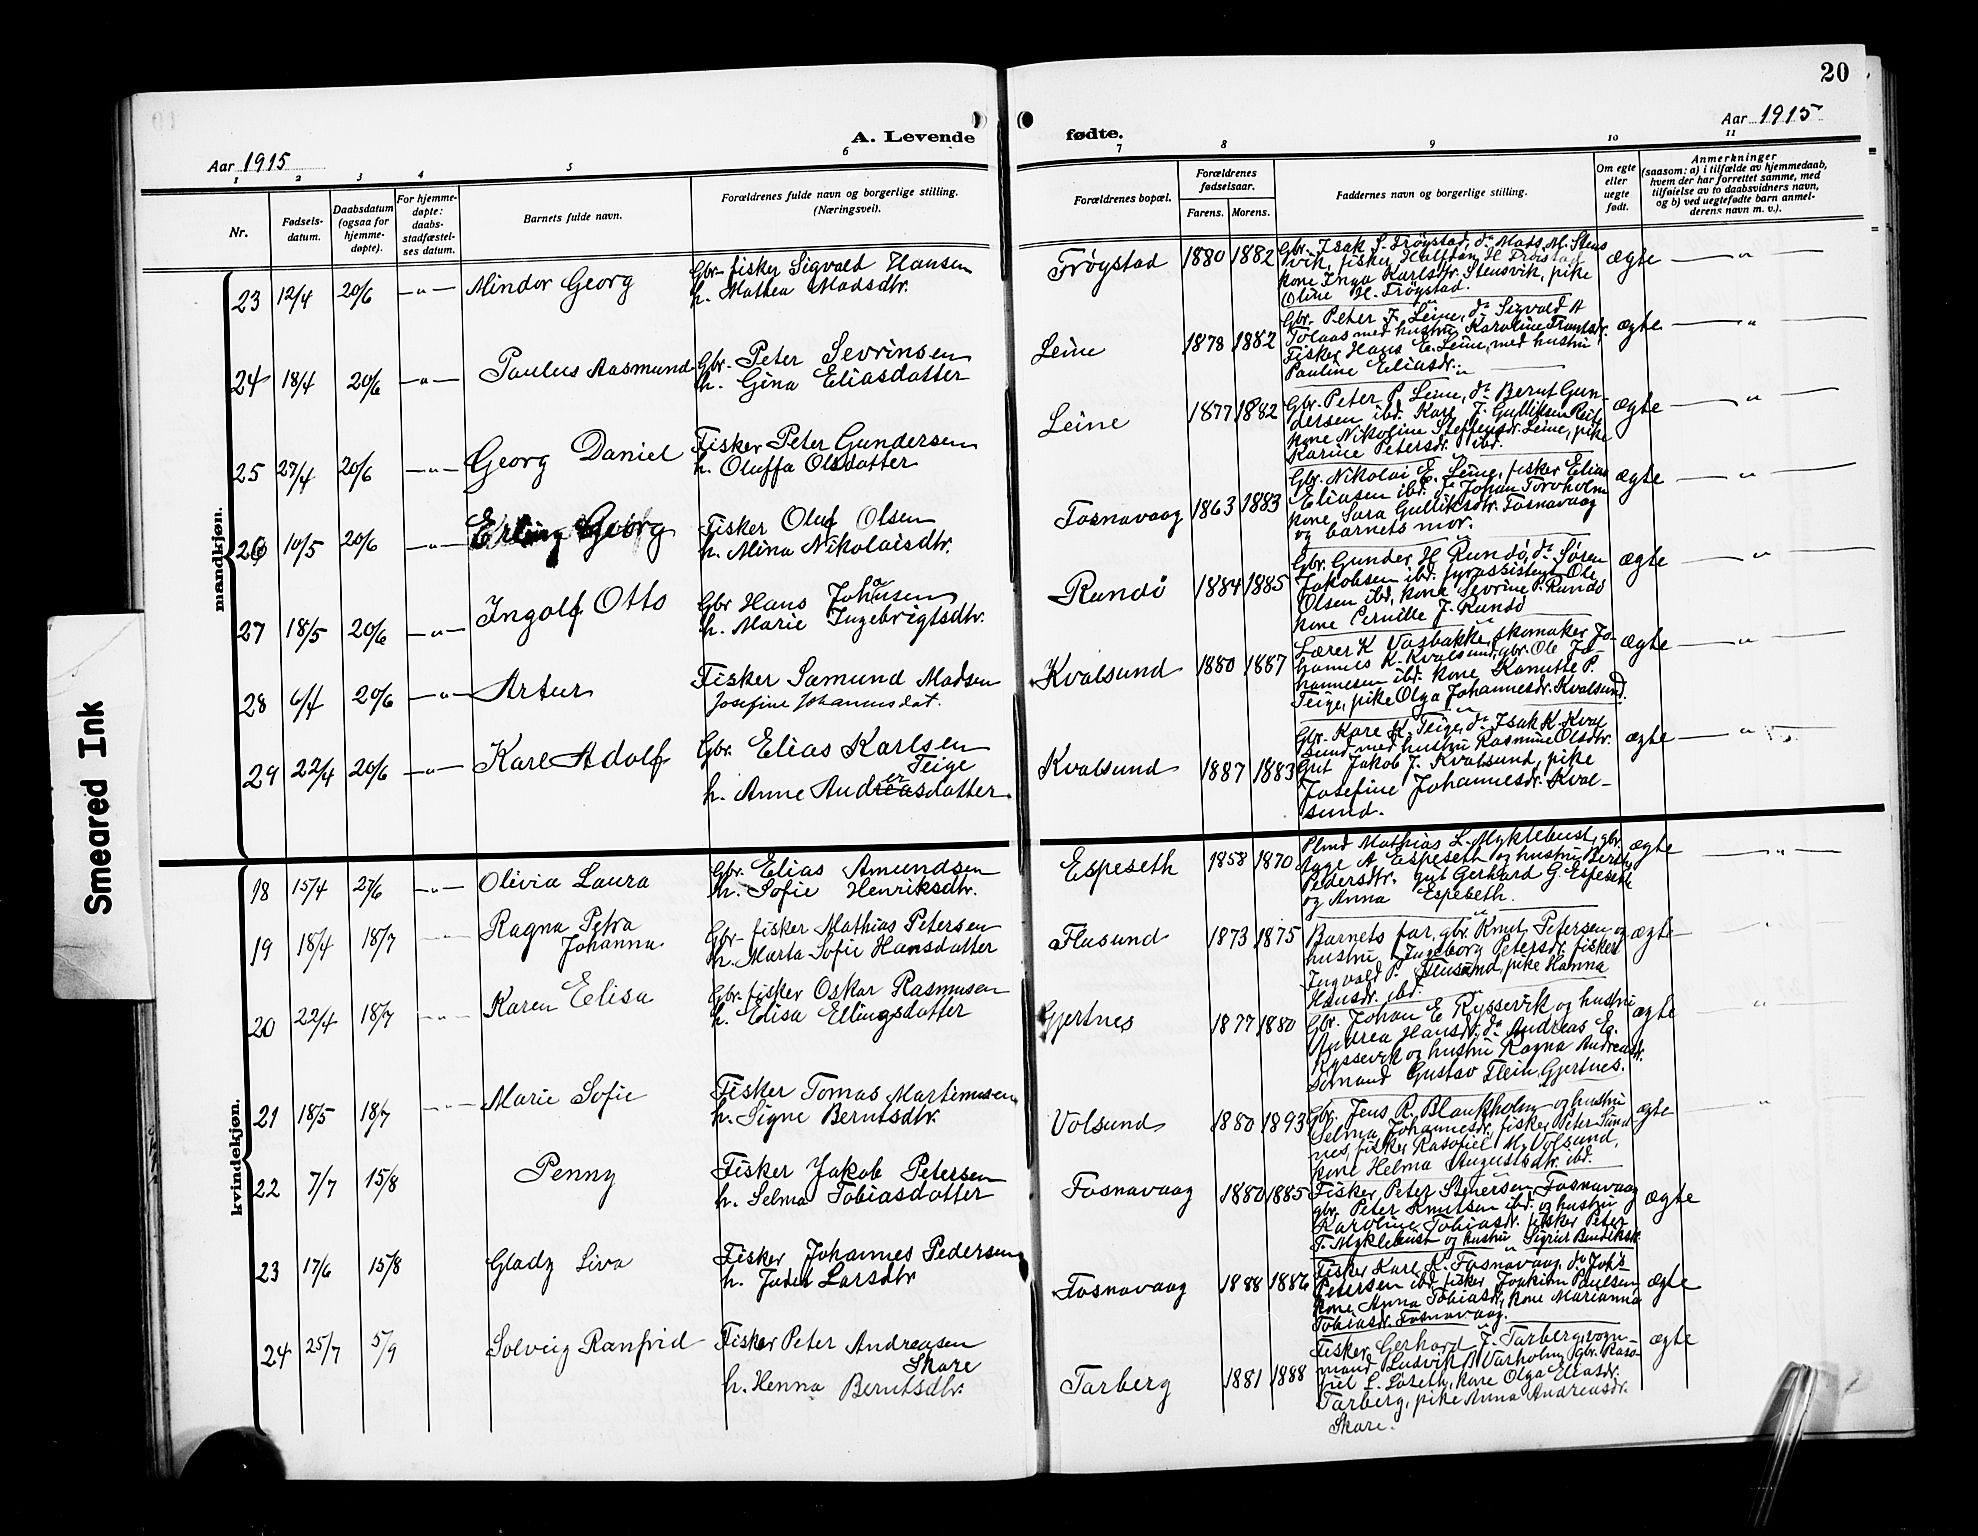 20
A. Levende fødte.
Aar 1915
Aar 1915
1 2 3 4 5 6 7 8 9 10 11
Nr.
Fødsels-
datum.
Daabsdatum
(ogsaa for
hjemme-
døpte).
For hjemme-
døpte:
daabs-
stadfæstel-
ses datum.
Barnets fulde navn.
Forældrenes fulde navn og borgerlige stilling.
(Næringsvei).
Forældrenes bopæl.
Forældrenes
fødselsaar.
Farens. Morens.
Faddernes navn og borgerlige stilling.
Om egte
eller
uegte
født.
Anmerkninger
(saasom: a) i tilfælde av hjemmedaab,
hvem der har forrettet samme, med
tilføielse av to daabsvidners navn,
og b) ved uegtefødte barn anmel-
derens navn m. v.).
mandkjøn.
23 12/4 20/6 —"— Mindor Georg
Gbr-fisker Sigvald Hansen
h. Mathea Madsdtr.
Frøystad 1880 1882
Gbr. Isak S. Frøystad, do Mads M. Stens
vik, fisker Halfdan H Frøistad
kone Inga Karlsdr. Stensvik, pike
Oline H. Frøystad.
ægte —"—
24 18/4 20/6 —"— Paulus Aasmund
Gbr. Peter Sevrinsen
h. Gina Eliasdatter
Leine 1878 1882
Gbr. Peter J. Leine, do Sigvald A
Tolaas med hustru Karoline Frantsdr.
Fisker Hans E. Leine, med hustru
Pauline Eliasdr.
ægte —"—
25 27/4 20/6 —"— Georg Daniel
Fisker Peter Gundersen
h. Oluffa Olsdatter
Leine 1877 1882
Gbr. Peter P. Leine, do Bernt Gun-
dersen ibd. Karl J. Gulliksen Reit
kone Nikoline Steffensdr. Leine, pike
Karine Petersdr. ibd.
ægte —"—
26 10/5 20/6 —"— Erling Georg
Fisker Oluf Olsen
h. Alina Nikolaisdtr.
Fosnavaag 1863 1883
Gbr. Nikolai E. Leine, fisker Elias
Eliasen ibd. do Johan Torvholm
kone Sara Gulliksdtr. Fosnavaag
og barnets mor.
ægte —"—
27 18/5 20/6 —"— Ingolf Otto
Gbr Hans Johansen
h. Marie Ingebrigtsdtr.
Rundö 1884 1885
Gbr. Gunder H Rundö, do Søren
Jakobsen ibd. fyrassistent Ole
Olsen ibd, kone Sevrine P. Rundö
kone Pernille J. Rundö
ægte —"—
28 6/4 20/6 —"— Artur
Fisker Samund Madsen
Josefine Johannesdat.
Kvalsund 1880 1887
Lærer K Vasbakke, skomaker Jo-
hannes K. Kvalsund, gbr. Ole Jo-
hannesen ibd. kone Kanutte P.
Teige, pike Olga Johannesdr. Kvalsund.
ægte —"—
29 22/4 20/6 —"— Karl Adolf
Gbr. Elias Karlsen
Teige
h. Anne Andreasdatter.
Kvalsund 1887 1883
Gbr. Karl K. Teige, do Isak K. Kval
sund med hustru Rasmine Olsdtr.
Gut Jakob J. Kvalsund, pike
Josefine Johannesdr. Kval-
sund.
ægte —"—
kvindekjøn.
18 15/4 27/6 —"— Olivia Laura
Gbr. Elias Amundsen
h. Sofie Henriksdtr.
Espeseth 1858 1870
Plmd Mathias L. Myklebust, gbr.
Aage A. Espeseth og hustru Berthe
Pedersdtr. gut Gerhard G. Espeseth
og Anna Espeseth.
ægte —"—
19 18/4 18/7 —"— Ragna Petra
Johanna
Gbr-fisker Mathias Petersen
h. Marta Sofie Hansdatter
Flusund 1873 1875
Barnets far, gbr. Knut Petersen og
hustru Ingeborg Petersdr. fisker
Ingvald P. Flusund, pike Hanna
Hansdr. ibd.
ægte —"—
20 22/4 18/7 —"— Karen Elisa
Gbr.-fisker Oskar Rasmusen
h. Elisa Ellingsdatter
Gjertnes 1877 1880
Gbr. Johan E Ryssevik og hustru
Andrea Hansdr. do Andreas E.
Ryssevik og hustru Ragna Andreasdr.
Sømand Gustav Flem, Gjertnes.
ægte —"—
21 18/5 18/7 —"— Marie Sofie
Fisker Tomas Martinusen
h. Signe Berntsdtr.
Volsund 1880 1893
Gbr. Jens R. Blankholm og hustru
Selma Johannesdr. fisker Peter Sund
nes, fisker Rasofiel M. Volsund,
kone Helma Augustsdtr. ibd.
ægte —"—
22 7/7 15/8 Penny
Fisker Jakob Petersen
h. Selma Tobiasdatter
Fosnavaag 1880 1885
Fisker Peter Stenersen Fosnavaag
gbr. Peter Knutsen ibd. og hustru
Karoline Tobiasdr. fisker Peter
T. Myklebust og hustru Sigrid Bendiksdr.
ægte
23 17/6 15/8 Glady Liva
Fisker Johannes Pedersen
h. Larsdtr
Fosnavaag 1888 1886
Fisker Karl K. Fosnavaag, do Johs
Petersen ibd. fisker Joakim Paulsen,
kone Anna Tobiasdr. kone Marianna
Tobiasdr. Fosnavaag.
ægte
24 25/7 5/9 Solveig Ranfrid
Fisker Peter Andreasen
Skare
h. Henna Berntsdtr.
Tarberg 1881 1888
Fisker Gerhard J. Tarberg, vogn-
mand Ludvik A Varholm, gbr. Raso-
fiel L. Løseth, kone Olga Eliasdr.
Tarberg, pike Anna Andreasdr.
Skare.
ægte
Smeared Ink